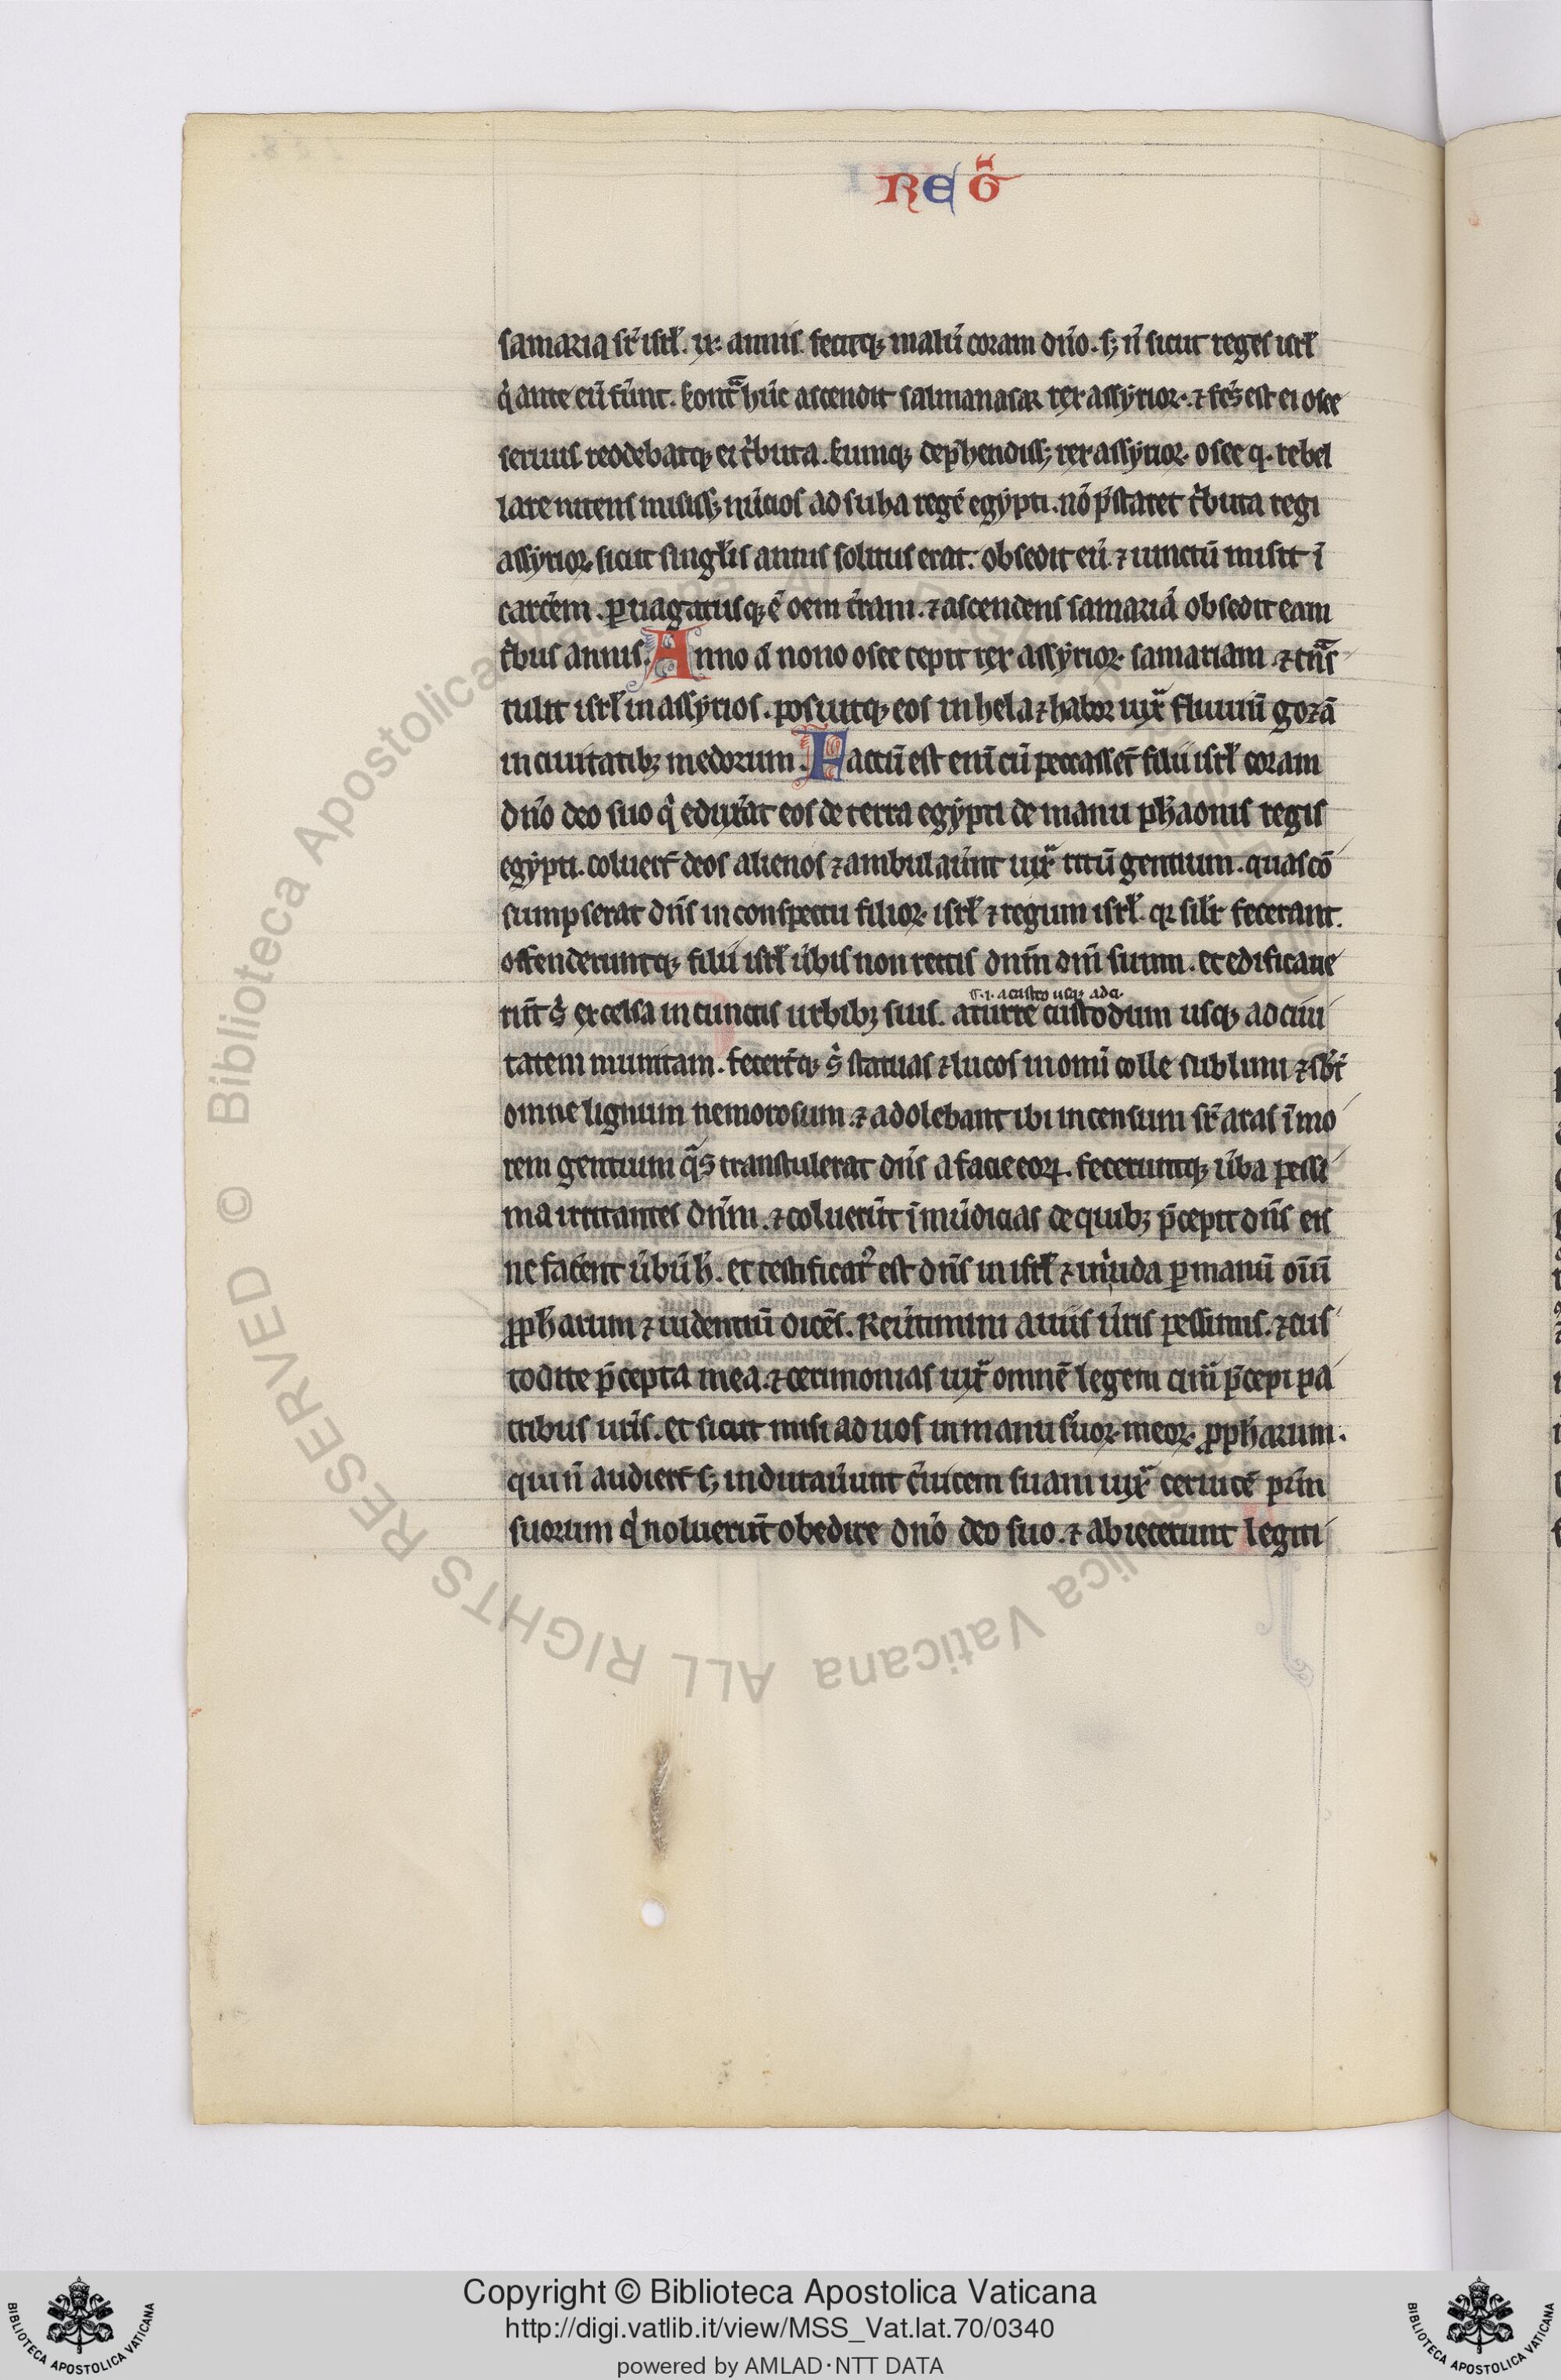 REG̃
samaria sr̄ isrł. ix. annis. fecitq; malū coram dn̄o. s; n̄ sicut reges isrł
q̇ ante eū fūnt. Kont̄ hūc ascendit salmanasar rex assyrioꝝ. ⁊ fc̄s est ei osee
seruus reddebatq; ei t̓buta. Kumq; dep̄hendiss; rex assyrioꝝ osee q. rebel
lare nitens misiss; nūcios ad suha regē egypti. nō p̄staret t̓buta regi
assyrioꝝ sicut singłis annis solitus erat. obsedit eū. ⁊ uinctū misit ī
carcēm. ꝑuagatusq; ē oem t̄ram. ⁊ ascendens samariā obsedit eam
t̓bus annis. Anno ā nono osee cepit rex assyrioꝝ samariam. ⁊ tn̄s
tulit isrł in assyrios. posuitq; eos in hela ⁊ habor iux̄ fluuiū gozā
in ciuitatib; medorum. Factū est eni cū peccassēt filii isrł coram
dn̄o deo suo q̇ eduxāt eos de terra egypti de manu ph̄aonis regis
egypti. coluer̄t deos alienos ⁊ ambulaūnt iux̄ ritū gentium. quas cō
sumpserat dn̄s in conspectu filioꝝ isrł ⁊ regum isrł. qꝛ silr̄ fecerant.
offenderuntq; filii isrł ūbis non rectis dnm̄ dm̄ suum. et edificaue
rūt s̓ excelsa in cunctis urbib; suis. a turre custodum usq; ad ciui
s. i. a castro usq; ad ci.
tatem munitam. fecer̄tq; s̓ statuas ⁊ lucos in omi colle sublimi ⁊ sb̄t
omne lignum nemorosum. ⁊ adolebant ibi incensum sr̄ aras ī mo
rem gentium q̄s transtulerat dn̄s a facie eoꝝ. feceruntq; ūba pessi
ma irritantes dn̄m. ⁊ coluerūt īmūdicias de quib; p̄cepit dn̄s eis
ne facēnt ūbū h̄. et testificat᾽ est dn̄s in isrł ⁊ in iuda ꝑ manū oiū
ꝓph̄arum ⁊ uidentiū dicēs. Reūtimini a uiis ūris pessimis. ⁊ cus
todite p̄cepta mea. ⁊ cerimonias iux̄ omnē legem quā p̄cepi pa
tribus uris̄. et sicut misi ad uos in manu ſuoꝝ meoꝝ ꝓph̄arum.
qui n̄ audier̄t s; indurauūnt c̄uicem suam iux̄ ceruicē pr̄m
suorum q̇ noluerūt obedire dn̄o deo suo. ⁊ abiecerunt legiti
© Biblioteca Apostolica Vaticana ALL RIGHTS RESERVED
Copyright © Biblioteca Apostolica Vaticana
http://digi.vatlib.it/view/MSS_Vat.lat.70/0340
powered by AMLAD·NTT DATA
BIBLIOTECA APOSTOLICA VATICANA
BIBLIOTECA APOSTOLICA VATICANA